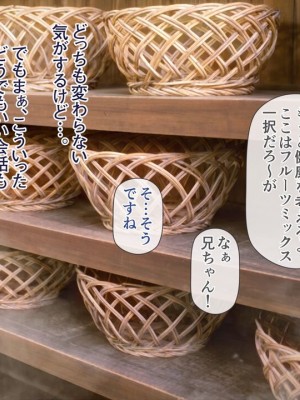 ここはフルーツミックス
一択だろ～が
なぁ
兄ちゃん！
そ…そう
ですね
どっちも変わらない
気がするけど…。
でもまぁ、こういった
どうでもいい会話も